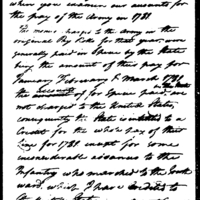 where you examine our accounts for
the pay of the Army in 1781
The monies charged to the Army on the
original Pay Rolls for their year were
generally paid in Specie by the State
but the amount of this pay for
January February & March 1781
the amount of for Specie paid are
not charged to the United States,
consequently the State is entitled to a
Credit for the whole Pay of their
line for 1781 except for some
inconsiderable advances to the
Infantry who marched to the South
ward, which I have credited to